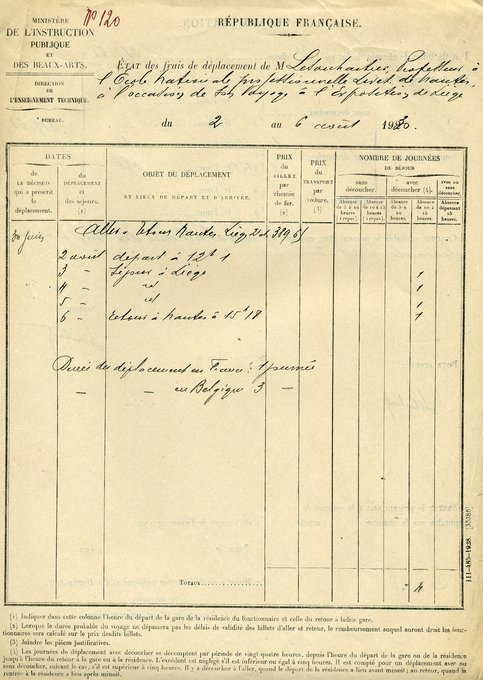 MINISTÈRE
DE L'INSTRUCTION
PUBLIQUE
ET
DES BEAUX-ARTS.
DIRECTION
DE
L'ENSEIGNEMENT TECHNIQUE.
BUREAU.
N° 120
RÉPUBLIQUE FRANÇAISE.
ÉTAT des frais de déplacement de M Professeur à
l'Ecole Nationale professionnelle Livet de Nantes,
à l'occasion de son Voyage à l'Exposition de Liège
du 2 au 6 août 1930.
DATES
de
LA DÉCISION
qui a prescrit
le
déplacement.
du
DÉPLACEMENT
et
des séjours.
(1)
OBJET DU DÉPLACEMENT
ET LIEUX DE DÉPART ET D'ARRIVÉE.
PRIX
du
BILLET
par
chemin
de fer.
(2)
PRIX
du
TRANSPORT
par
voiture.
(3)
NOMBRE DE JOURNÉES
DE SÉJOUR
sans
découcher
avec
découcher (4).
avec ou
sans
découcher
Absence
de 5 à 10
heures
(1 repas).
Absence
de 10 à 15
heures
(2 repas).
Absence
de 5
à 10
heures.
Absence
de 10
à 15
heures.
Absence
dépassant
15
heures.
30 Juin
Aller & retour Nantes Liège 389,65
2 août départ à 12h 1
3 - Séjour à Liège 1
4 - id 1
5 - id 1
6 - retour à Nantes à 15h 18 1
Durée du déplacement en France : 1 journée
- - en Belgique 3 -
TOTAUX 4
111-485-1928. [33381]
(1) Indiquer dans cette colonne l'heure du départ de la gare de la résidence du fonctionnaire et celle du retour à ladite gare.
(2) Lorsque la durée probable du voyage ne dépassera pas les délais de validité des billets d'aller et retour, le remboursement auquel auront droit les fonc-
tionnaires sera calculé sur le prix desdits billets.
(3) Joindre les pièces justificatives.
(4) Les journées de déplacement avec découcher se décomptent par période de vingt-quatre heures, depuis l'heure du départ de la gare ou de la résidence
jusqu'à l'heure du retour à la gare ou à la résidence. L'excédent est négligé s'il est inférieur ou égal à cinq heures. Il est compté pour un déplacement avec ou
sans découcher, suivant le cas, s'il est supérieur à cinq heures. Il y a découcher à l'aller, quand le départ de la résidence a lieu avant minuit; au retour, quand la
rentrée à la résidence a lieu après minuit.